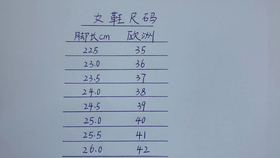 女鞋尺码
脚长cm 欧洲
225 35
23.0 36
23.5 37
24.0 38
24.5 39
25.0 40
25.5 41
26.0 42